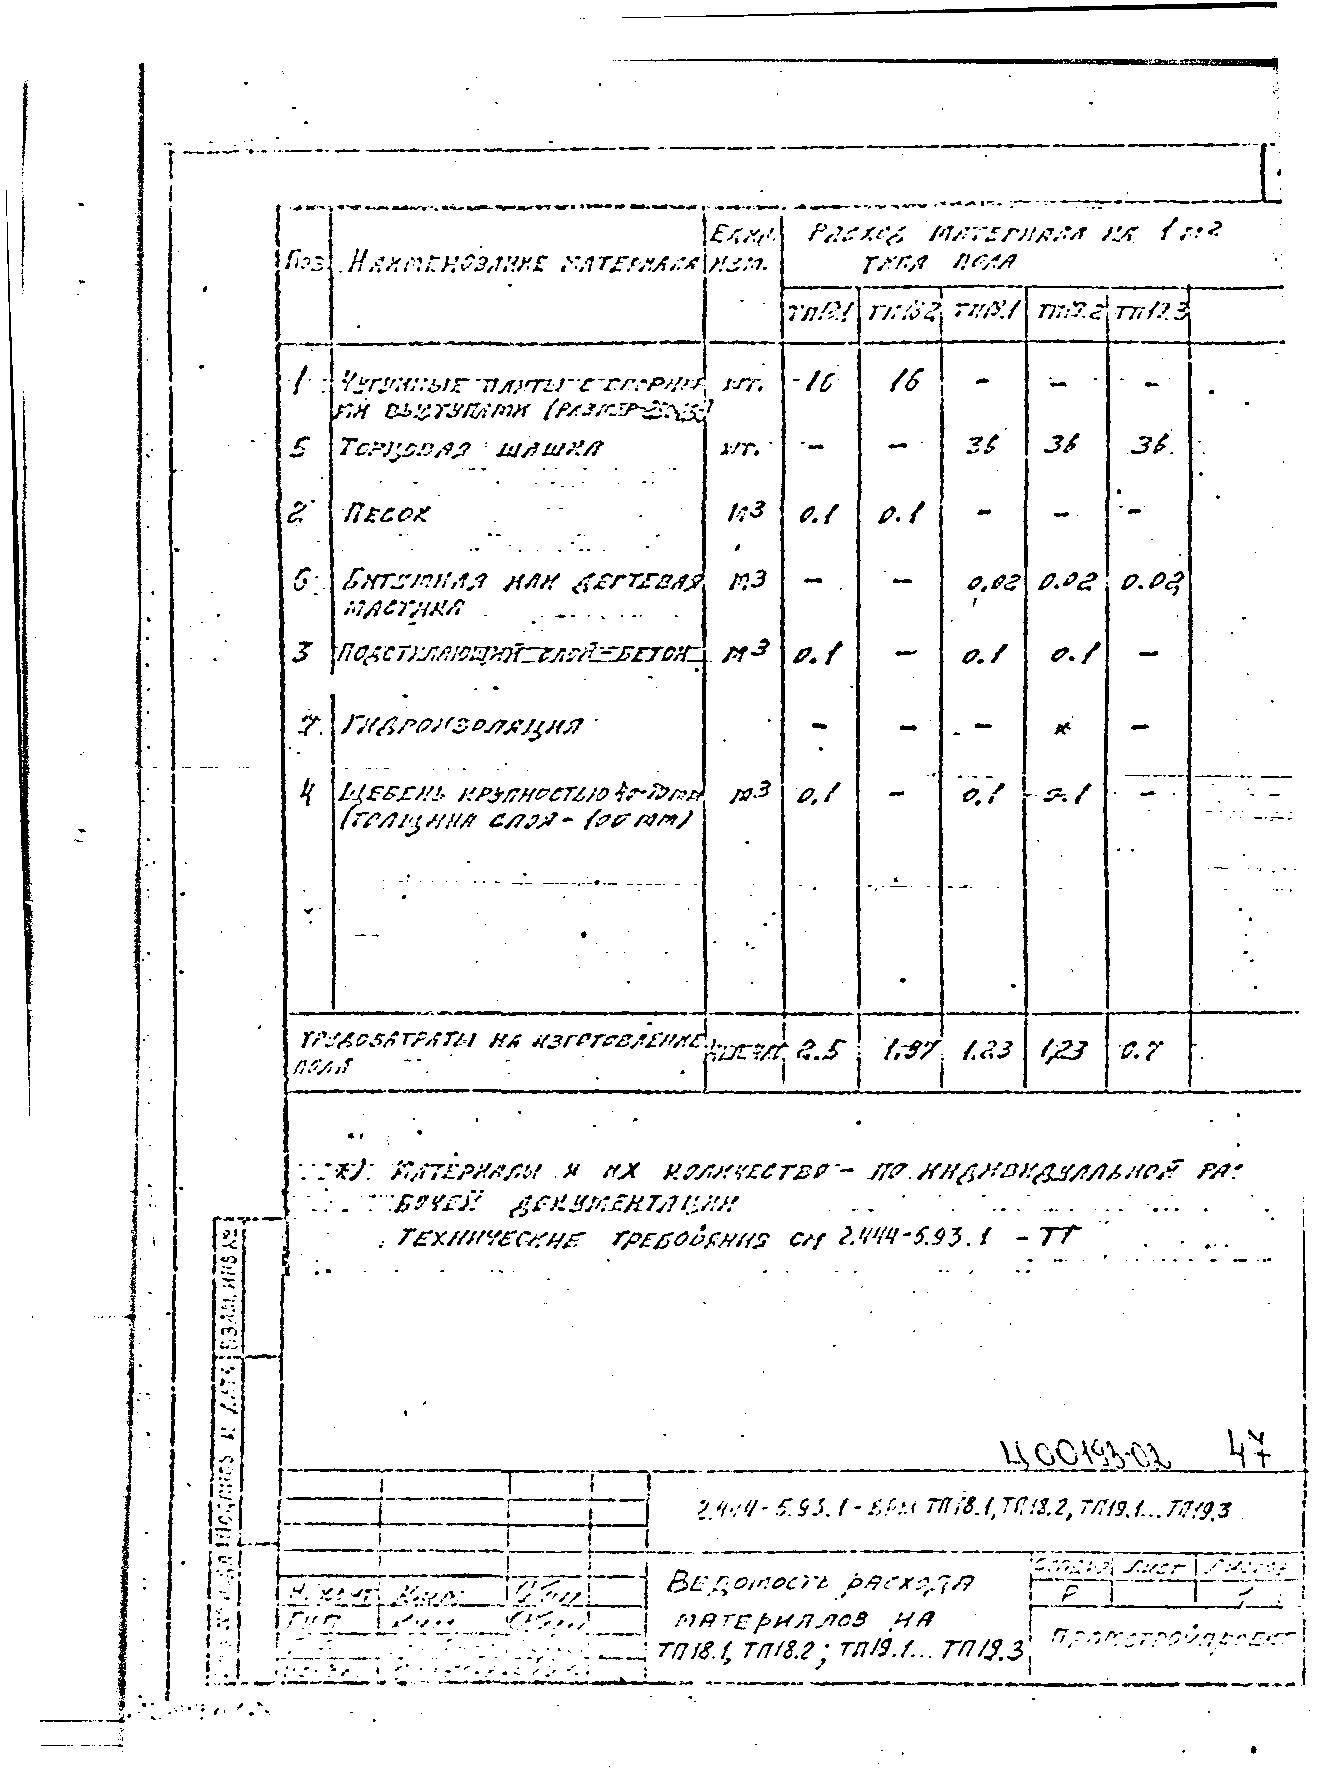 Поз. Наименование материала Един. изм. Расход материала на 1 м2
типа пола
ТП18.1 ТП18.2 ТП19.1 ТП19.2 ТП19.3
1 Чугунные плиты с опорны- шт. 16 16 – – –
ми выступами (размер
5 Торцовая шашка шт. – – 36 36 36
2 Песок м3 0.1 0.1 – – –
6 Битумная или дегтевая м3 – – 0.02 0.02 0.02
мастика
3 Подстилающий слой – бетон м3 0.1 – 0.1 0.1 –
7. Гидроизоляция – – – * –
4 Щебень крупностью 40-70мм м3 0.1 – 0.1 0.1 –
(толщина слоя – 100 мм)
Трудозатраты на изготовление 2.5 1.97 1.23 1,23 0.7
пола
*) Материалы и их количество – по индивидуальной ра-
бочей документации
Технические требования см 2.444-5.93.1 - ТТ
Ц00193-02 47
2.444-5.93.1- ТП18.1, ТП18.2, ТП19.1...ТП19.3
Ведомость расхода
материалов на
ТП18.1, ТП18.2; ТП19.1... ТП19.3
Стадия Лист Листов
Р 1
Промстройпроект
Н.конт
ГИП
Подпись и дата
Взам. инв №